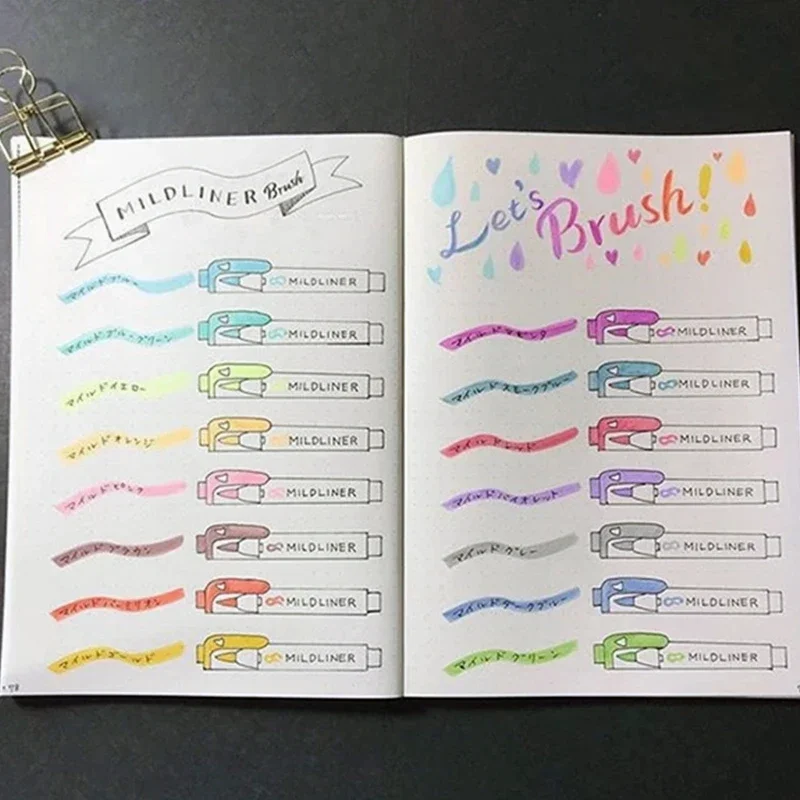 MILDLINER Brush
マイルドブルー MILDLINER
マイルドブルーグリーン MILDLINER
マイルドイエロー MILDLINER
マイルドオレンジ MILDLINER
マイルドピンク MILDLINER
マイルドブラウン MILDLINER
マイルドバーミリオン MILDLINER
マイルドゴールド MILDLINER
Let's
Brush!
マイルドマゼンタ MILDLINER
マイルドスモークブルー MILDLINER
マイルドレッド MILDLINER
マイルドバイオレット MILDLINER
マイルドグレー MILDLINER
マイルドダークブルー MILDLINER
マイルドグリーン MILDLINER